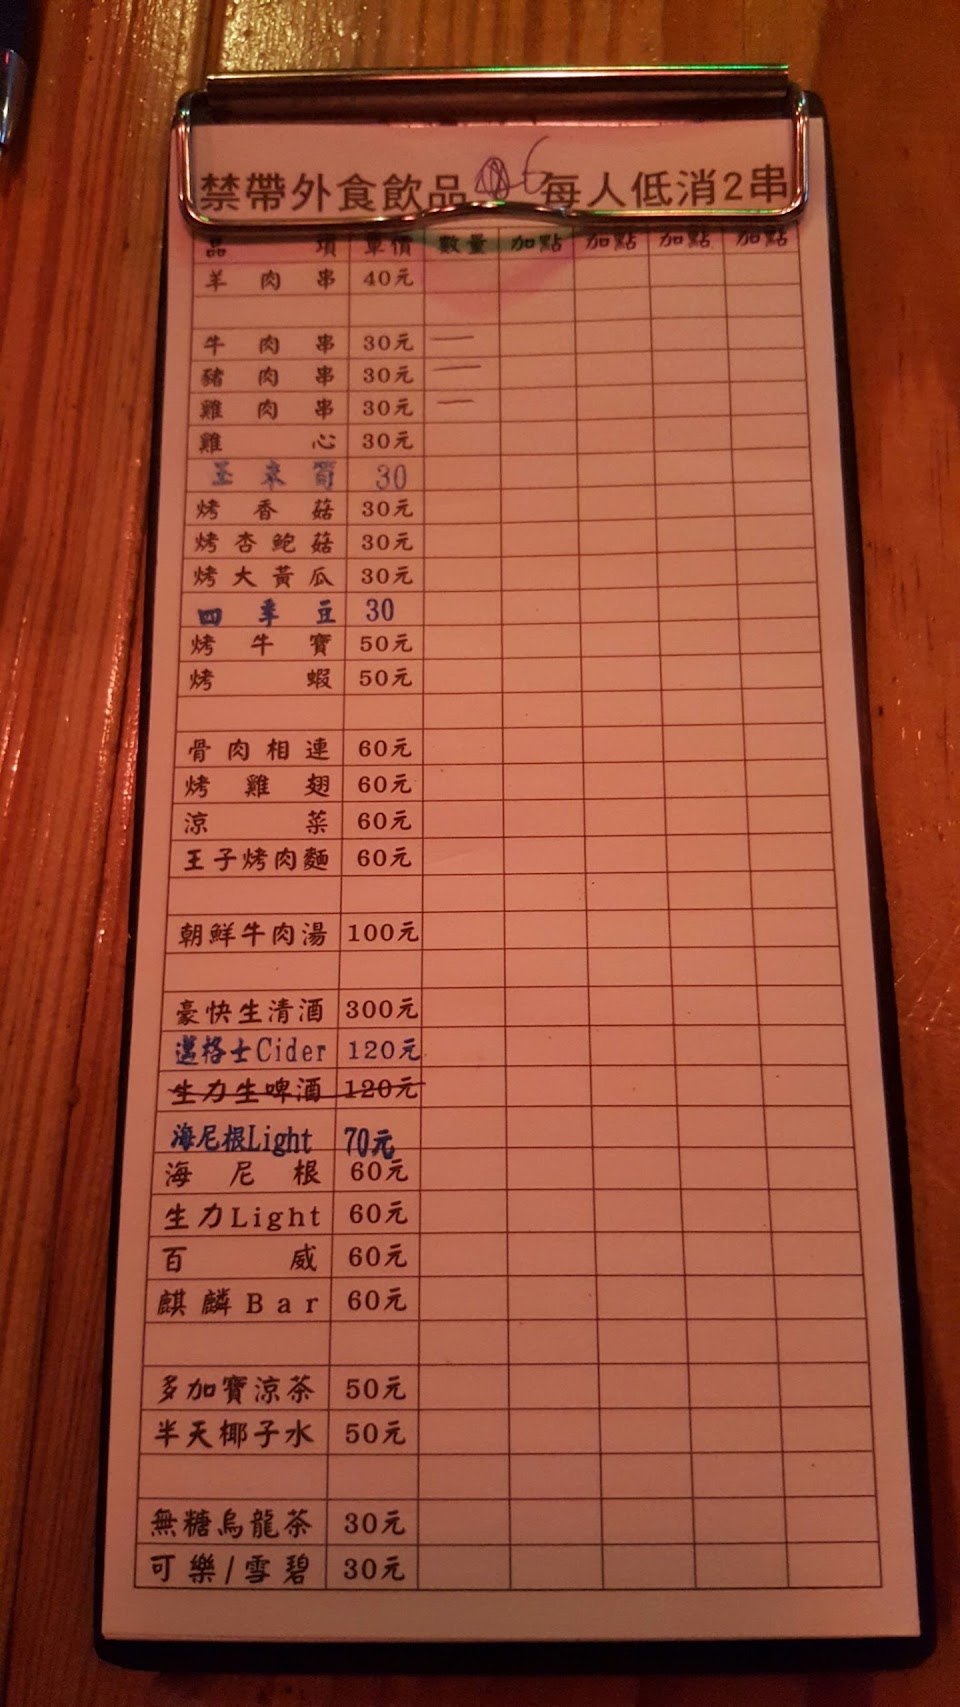 禁帶外食飲品 6 每人低消2串
品項 單價 數量 加點 加點 加點 加點
羊肉串 40元
牛肉串 30元 一
豬肉串 30元 一
雞肉串 30元 一
雞心 30元
玉米筍 30
烤香菇 30元
烤杏鮑菇 30元
烤大黃瓜 30元
四季豆 30
烤牛寶 50元
烤蝦 50元
骨肉相連 60元
烤雞翅 60元
涼菜 60元
王子烤肉麵 60元
朝鮮牛肉湯 100元
豪快生清酒 300元
邁格士Cider 120元
生力生啤酒 120元
海尼根Light 70元
海尼根 60元
生力Light 60元
百威 60元
麒麟Bar 60元
多加寶涼茶 50元
半天椰子水 50元
無糖烏龍茶 30元
可樂/雪碧 30元